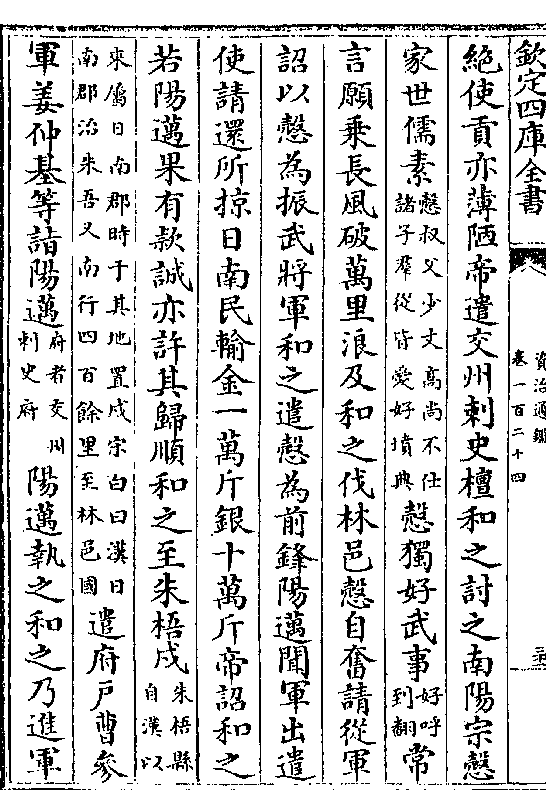 欽定四庫全書
資治通鑑
卷一百二十四
絕使貢亦薄陋帝遣交州刺史檀和之討之南陽宗慤
家世儒素慤叔父少文高尚不仕諸子羣從皆愛好墳典慤獨好武事好呼到翻常
言願乗長風破萬里浪及和之伐林邑慤自奮請從軍
詔以慤為振武將軍和之遣慤為前鋒陽邁聞軍出遣
使請還所掠日南民輸金一萬斤銀十萬斤帝詔和之
若陽邁果有款誠亦許其歸順和之至朱梧戍朱梧縣自漢以
來屬日南郡時于其地置戍宋白曰漢日南郡治朱吾又南行四百餘里至林邑國遣府戸曹參
軍姜仲基等詣陽邁府者交州刺史府陽邁執之和之乃進軍